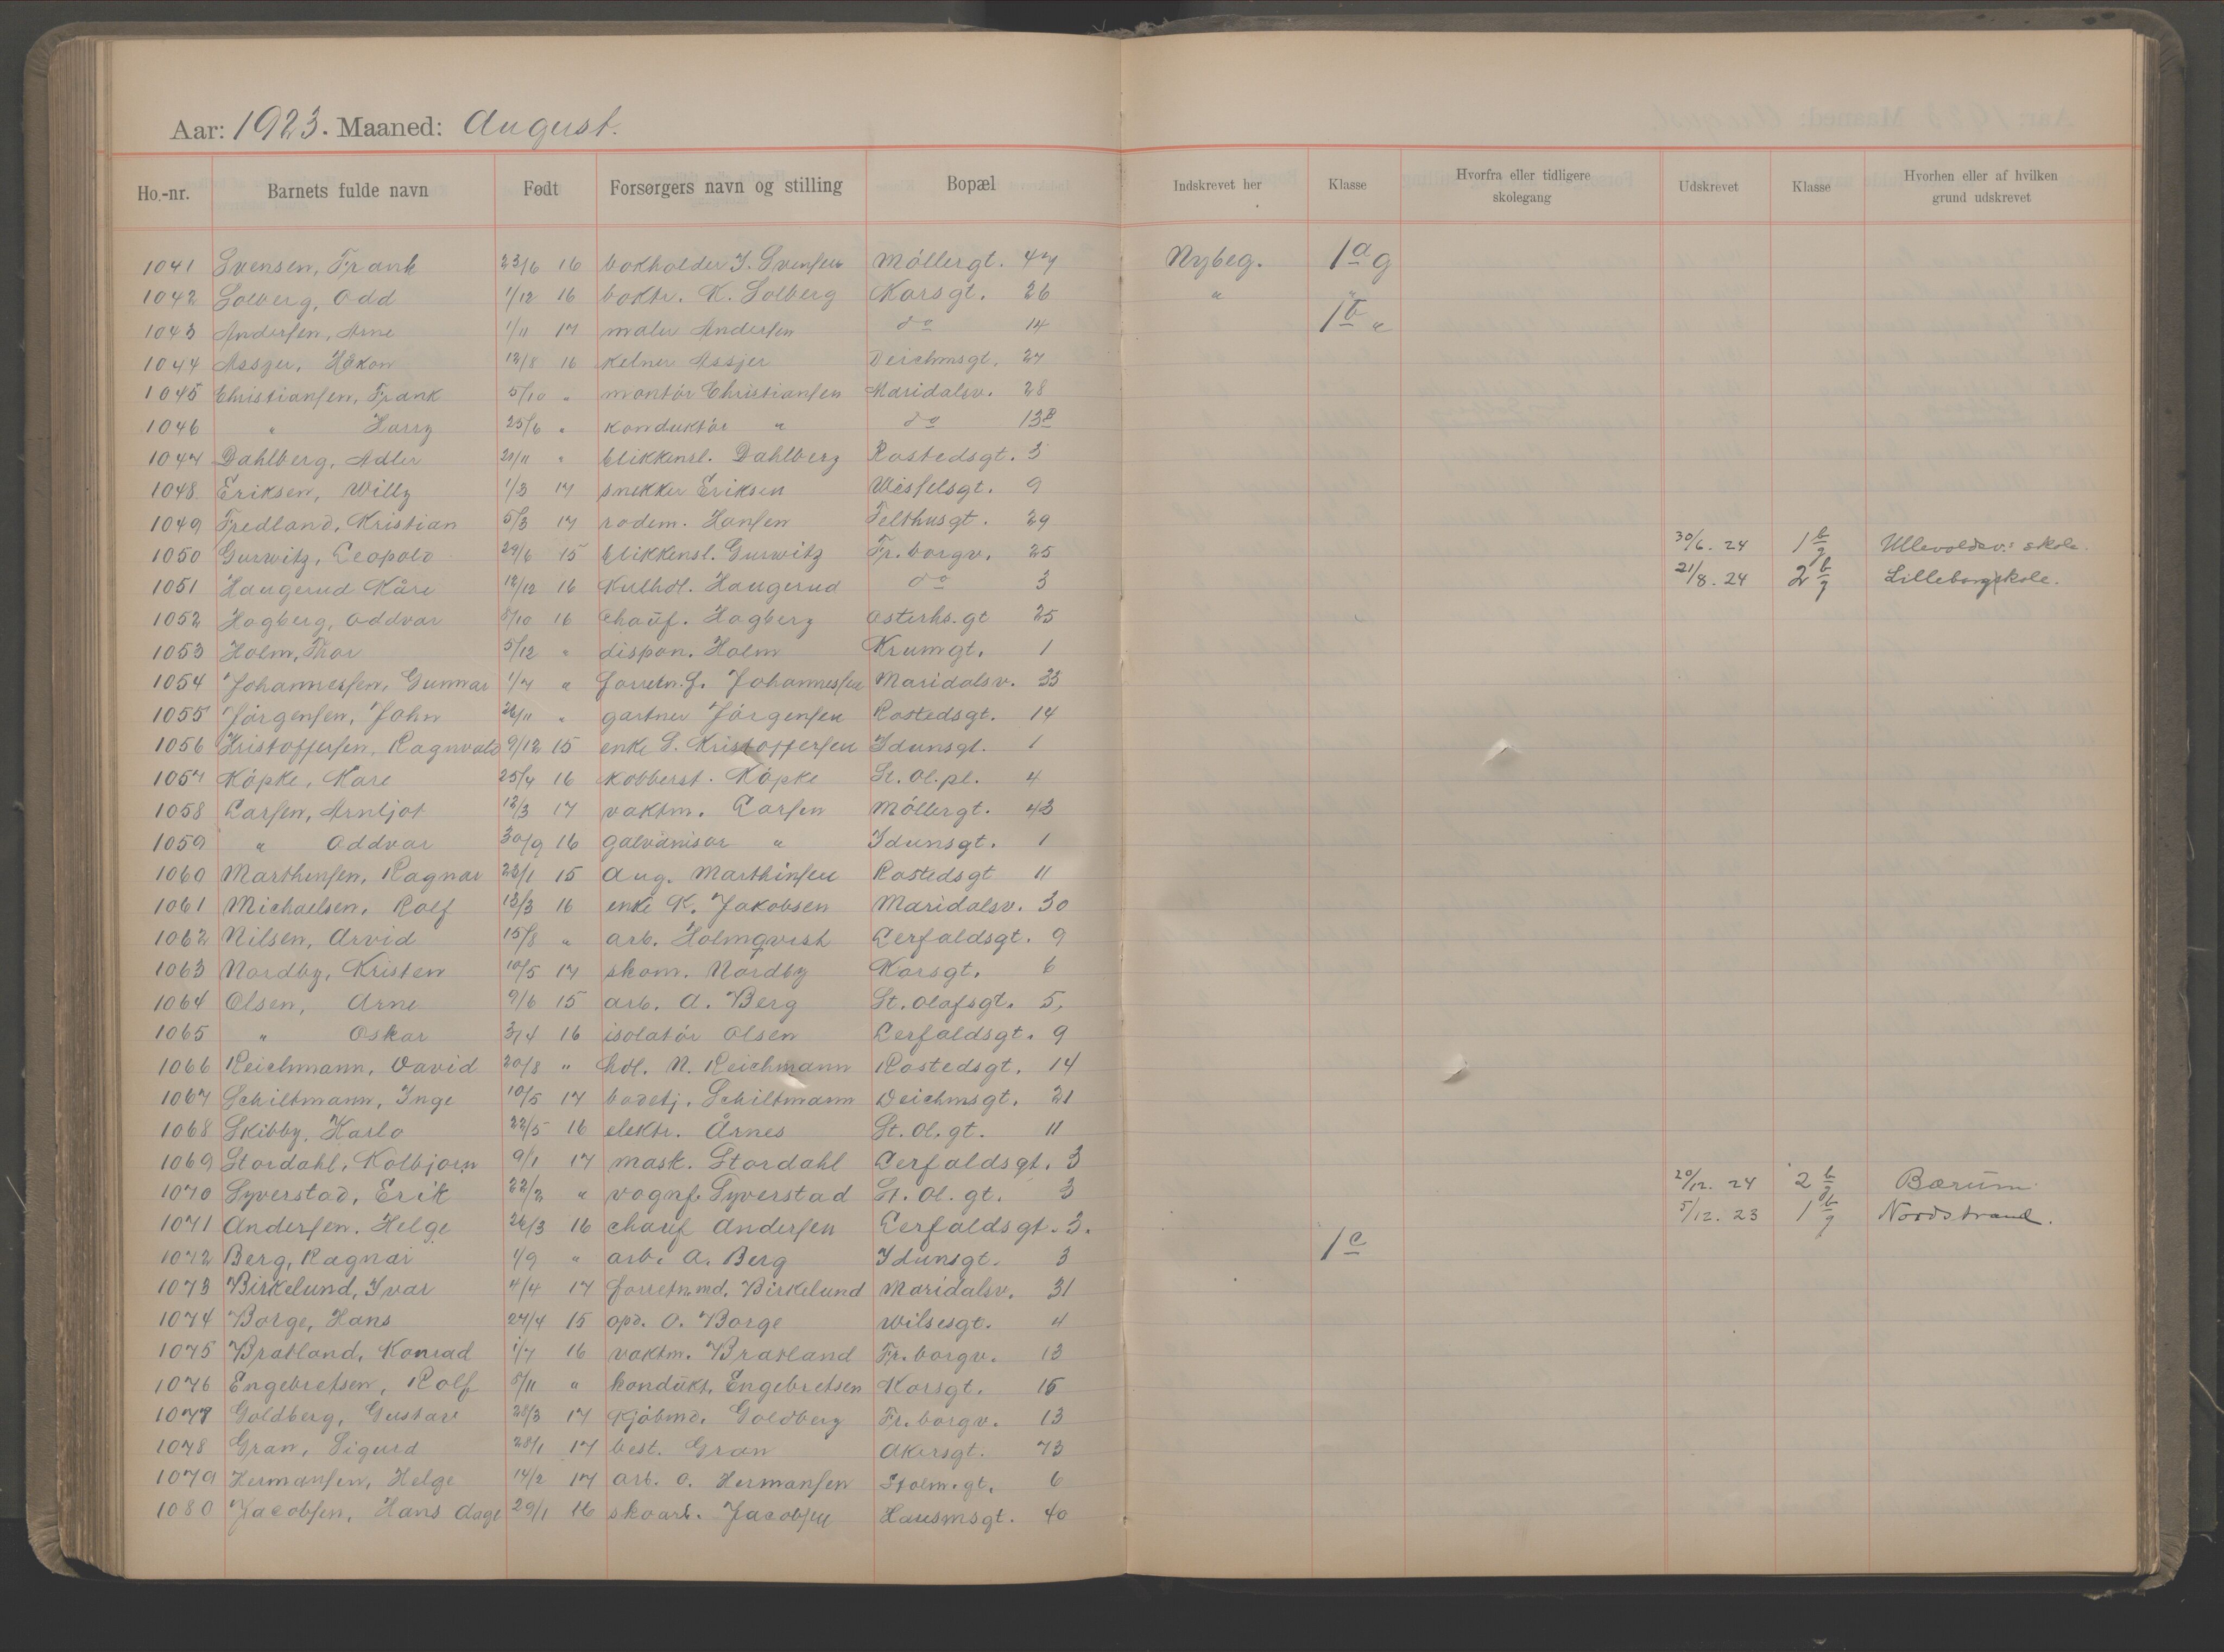 Aar: 1923. Maaned: August.
Ho.-nr. Barnets fulde navn Født Forsørgers navn og stilling Bopæl Indskrevet her Klasse Hvorfra eller tidligere skolegang Udskrevet Klasse Hvorhen eller af hvilken grund udskrevet
1041 Svensen, Frank 23/6 16 bokholder J. Svensen Möllergt. 47 Nybeg. 1a g
1042 Solberg, Odd 1/12 16 boktr. K. Solberg Korsgt. 26 " "
1043 Andersen, Arne 1/11 17 maler Andersen do 14 1b "
1044 Assjer, Håkon 12/8 16 kelner Assjer Deichmsgt. 27
1045 Christiansen, Frank 5/10 " montör Christiansen Maridalsv. 28
1046 " Harry 25/6 " konduktör " do 13B
1047 Dahlberg, Adler 21/11 " blikkensl. Dahlberg Rostedsgt. 3
1048 Eriksen, Willy 1/3 17 snekker Eriksen Wesselsgt. 9
1049 Fredland, Kristian 5/3 17 rodem. Hansen Telthusgt. 29
1050 Gurwitz, Leopold 29/6 15 blikkensl. Gurwitz Fr.borgv. 25 30/6. 24 1 b/g Ullevoldsv.: skole.
1051 Haugerud Kåre 12/12 16 Kulhdl. Haugerud do 3 21/8. 24 2 b/g Lilleborg skole.
1052 Hogberg, Oddvar 8/10 16 Chauf. Hogberg Osterhs.gt 25
1053 Holm, Thor 5/12 " dispon. Holm Krumgt. 1
1054 Johannessen, Gunnar 1/7 " forretn.f. Johannessen Maridalsv. 33
1055 Jörgensen, John 26/11 " gartner Jörgensen Rostedsgt. 14
1056 Kristoffersen, Ragnvald 9/12 15 enke S. Kristoffersen Idunsgt. 1
1057 Köpke, Kare 25/4 16 kobberst. Köpke St. Ol. pl. 4
1058 Larsen, Arnljot 12/3 17 vaktm. Larsen Möllergt. 43
1059 " Oddvar 30/9 16 galvanisör " Idunsgt. 1
1060 Marthinsen, Ragnar 23/1 15 Aug. Marthinsen Rostedsgt 11
1061 Michaelsen, Rolf 13/3 16 enke K. Jakobsen Maridalsv. 30
1062 Nilsen, Arvid 15/8 " arb. Holmqvist Cerfaldsgt. 9
1063 Nordby, Kristen 10/5 17 skom. Nordby Korsgt. 6
1064 Olsen, Arne 9/6 15 arb. A. Berg St. Olafsgt. 5,
1065 " Oskar 3/4 16 isolatör Olsen Cerfaldsgt. 9
1066 Reichmann, David 20/8 " hdl. N. Reichmann Rostedsgt. 14
1067 Schiltmann, Inge 10/5 17 badetj. Schiltmann Deichmsgt. 21
1068 Skibby, Karlo 22/5 16 elektr. Årnes St. Ol. gt. 11
1069 Stordahl, Kolbjørn 9/1 17 mask. Stordahl Cerfaldsgt. 3
1070 Syverstad, Erik 22/2 " vognf. Syverstad St. Ol. gt. 3 20/12. 24 2 b/g Bærum
1071 Andersen. Helge 26/3 16 chauf Andersen Cerfaldsgt. 3. 5/12. 23 1 b/g Nordstrand.
1072 Berg, Ragnar 1/9 " arb. A. Berg Idunsgt. 3 1c
1073 Birkelund, Ivar 4/4 17 forretn.md. Birkelund Maridalsv. 31
1074 Borge, Hans 27/4 15 opd. O. Borge Wilsesgt. 4
1075 Bratland, Konrad 1/7 16 vaktm. Bratland Fr.borgv. 13
1076 Engebretsen, Rolf 8/11 " kondukt. Engebretsen Korsgt. 15
1077 Goldberg, Gustav 28/3 17 Kjöbmd. Goldberg Fr.borgv. 13
1078 Gran, Sigurd 28/1 17 best. Gran Akersgt. 73
1079 Hermansen, Helge 14/2 17 Arb. O. Hermansen Holm.gt. 6
1080 Jacobsen, Hans Aage 29/1 16 skoarb. Jacobsen Hausmsgt. 40